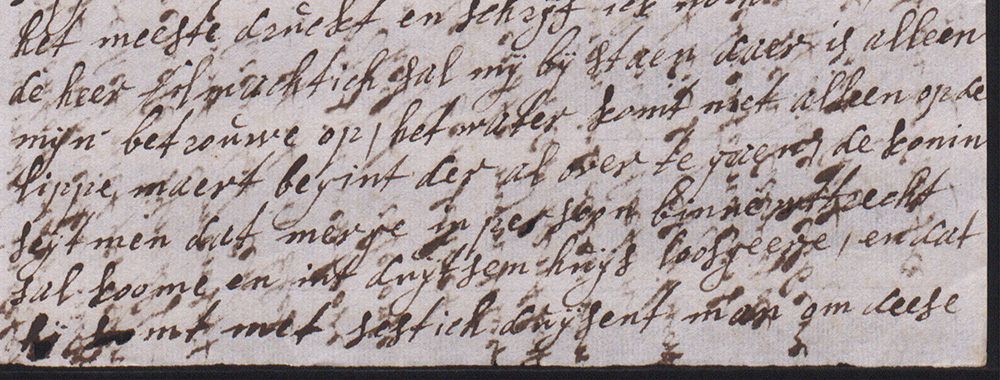 het meeste druckt en schrijf ick
de heer almachtich sal mij bij staen daer is alleen
mijn betrouwe op, het water komt niet alleen op de
lippe maert begint der al over te gaen, de konin
seijt men dat merge in persoon binne uttrecht
sal koome en int duytsem huijs loosgeere, en dat
hij komt met sestich duijsent man om deese